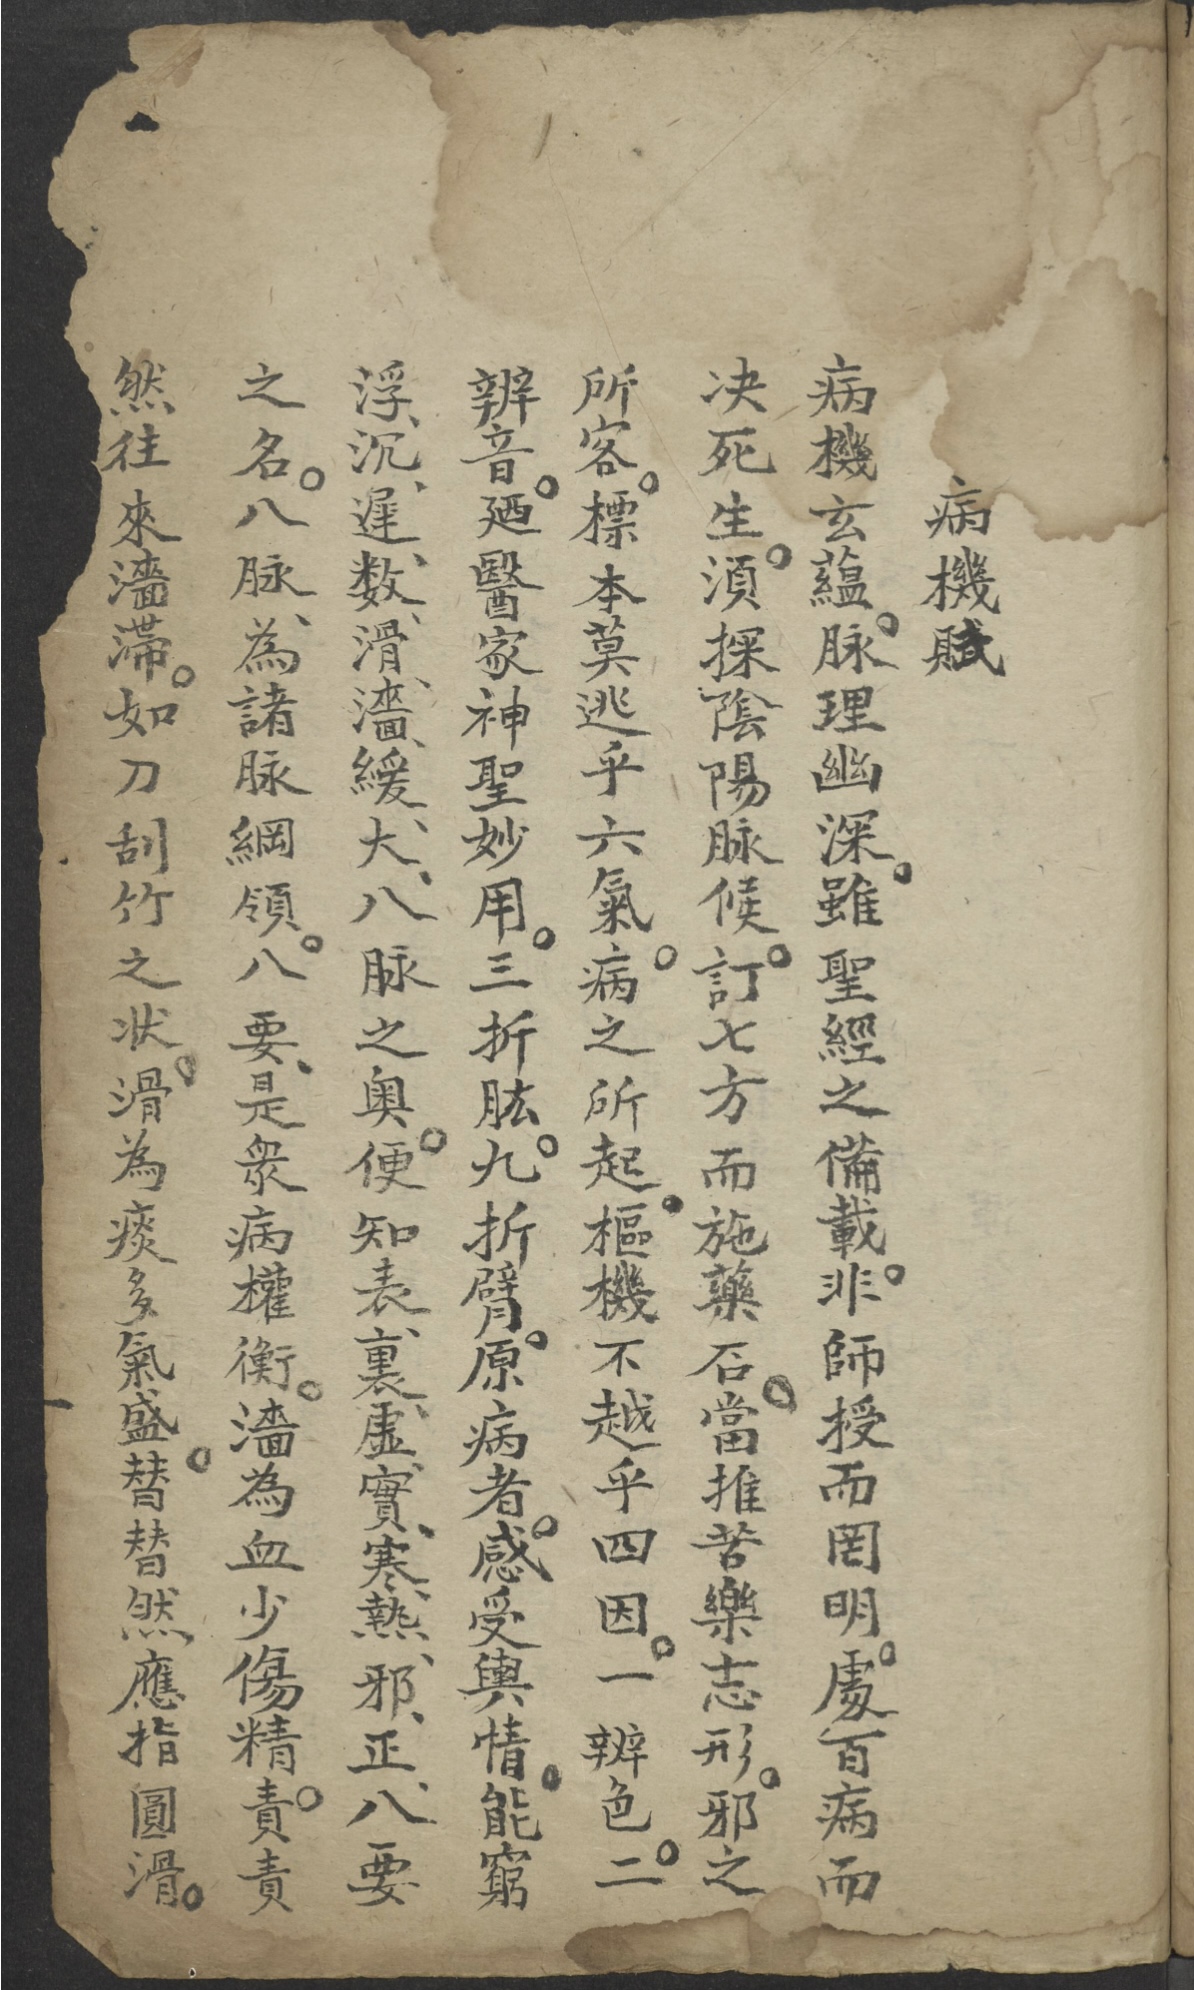 病機賦
病機玄蘊。脉理幽深。雖聖經之備載。非師授而罔明。處百病而
决死生。須探陰陽脉候。訂七方而施藥石。當推苦樂志形。邪之
所客。標本莫逃乎六氣。病之所起。樞機不越乎四因。一辨色。二
辨音。廼醫家神聖妙用。三折肱。九折臂。原病者。感受輿情。能窮
浮、沉、遲、数、滑、濇、緩、大、八脉之奥。便知表、裏、虛、實、寒、熱、邪、正、八要
之名。八脉、為諸脉綱領。八要、是衆病權衡。濇為血少傷精。責責
然往來濇滯。如刀刮竹之状。滑為痰多氣盛。替替然應指圓滑。